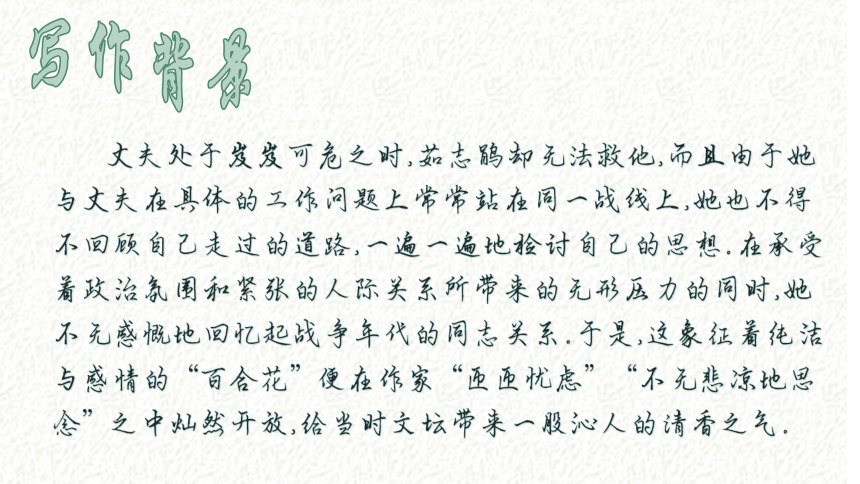 写作背景
丈夫处于岌岌可危之时,茹志鹃却无法救他,而且由于她
与丈夫在具体的工作问题上常常站在同一战线上,她也不得
不回顾自己走过的道路,一遍一遍地检讨自己的思想.在承受
着政治氛围和紧张的人际关系所带来的无形压力的同时,她
不无感慨地回忆起战争年代的同志关系.于是,这象征着纯洁
与感情的“百合花”便在作家“匝匝忧虑”“不无悲凉地思
念”之中灿然开放,给当时文坛带来一股沁人的清香之气.